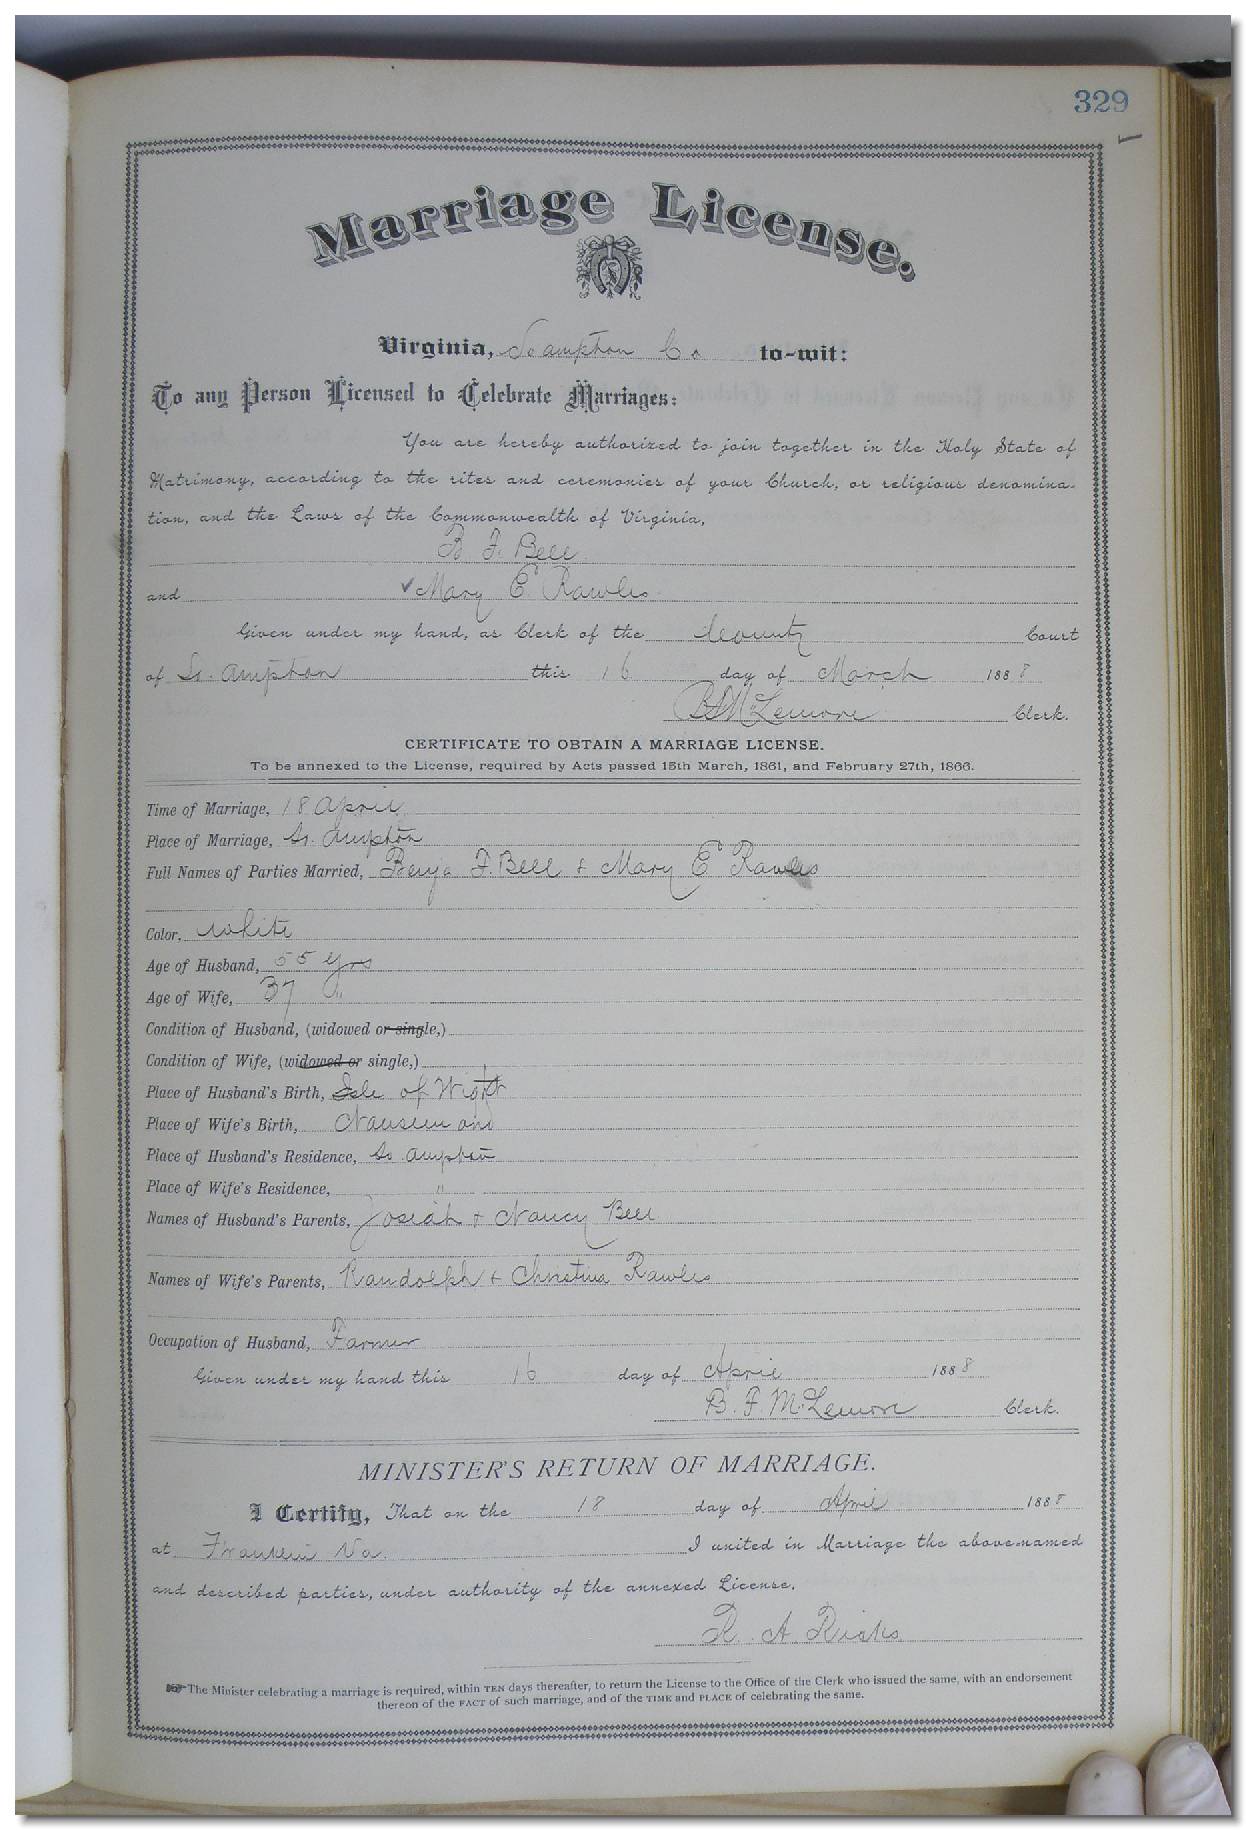 329
Marriage License.
Virginia, So ampton Co to-wit:
To any Person Licensed to Celebrate Marriages:
You are hereby authorized to join together in the Holy State of
Matrimony, according to the rites and ceremonies of your Church, or religious denomina-
tion, and the Laws of the Commonwealth of Virginia,
B F. Bell
and Mary E Rawles
Given under my hand, as Clerk of the County Court
of So. ampton this 16 day of March 1888
B F McLemore Clerk.
CERTIFICATE TO OBTAIN A MARRIAGE LICENSE.
To be annexed to the License, required by Acts passed 15th March, 1861, and February 27th, 1866.
Time of Marriage, 18 April
Place of Marriage, So. ampton
Full Names of Parties Married, Benja F. Bell & Mary E Rawles
Color, White
Age of Husband, 55 yrs
Age of Wife, 37 "
Condition of Husband, (widowed or single,)
Condition of Wife, (widowed or single,)
Place of Husband's Birth, Isle of Wight
Place of Wife's Birth, Nansemond
Place of Husband's Residence, So ampton
Place of Wife's Residence, "
Names of Husband's Parents, Josiah & Nancy Bell
Names of Wife's Parents, Randolph & Christina Rawles
Occupation of Husband, Farmer
Given under my hand this 16 day of April 1888
B. F. McLemore Clerk.
MINISTER'S RETURN OF MARRIAGE.
I Certify, That on the 18 day of April 1888
at Franklin Va. I united in Marriage the above-named
and described parties, under authority of the annexed License.
R. A. Ricks
The Minister celebrating a marriage is required, within TEN days thereafter, to return the License to the Office of the Clerk who issued the same, with an endorsement
thereon of the FACT of such marriage, and of the TIME and PLACE of celebrating the same.